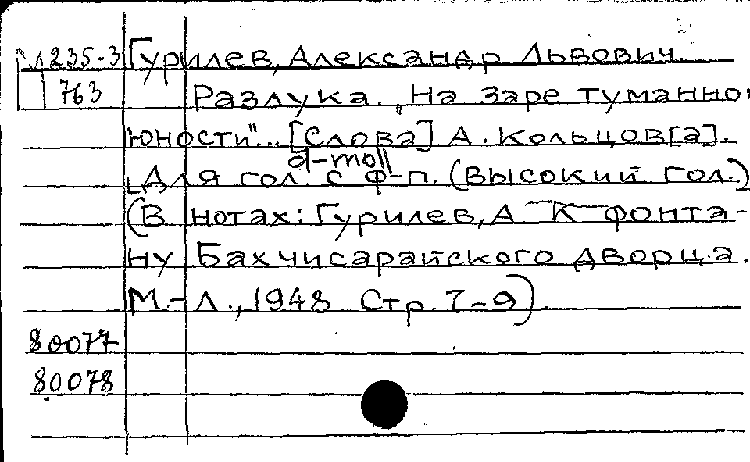 М235-3 Гурилев, Александр Львович
763 Разлука. „На заре туманной
юности"... [Слова] А. Кольцов[а].
d-moll
Для гол. с ф-п. (высокий гол.)
(В нотах: Гурилев, А К фонта-
ну Бахчисарайского дворца.
М.-Л., 1948 Стр. 7-9)
80077
80078